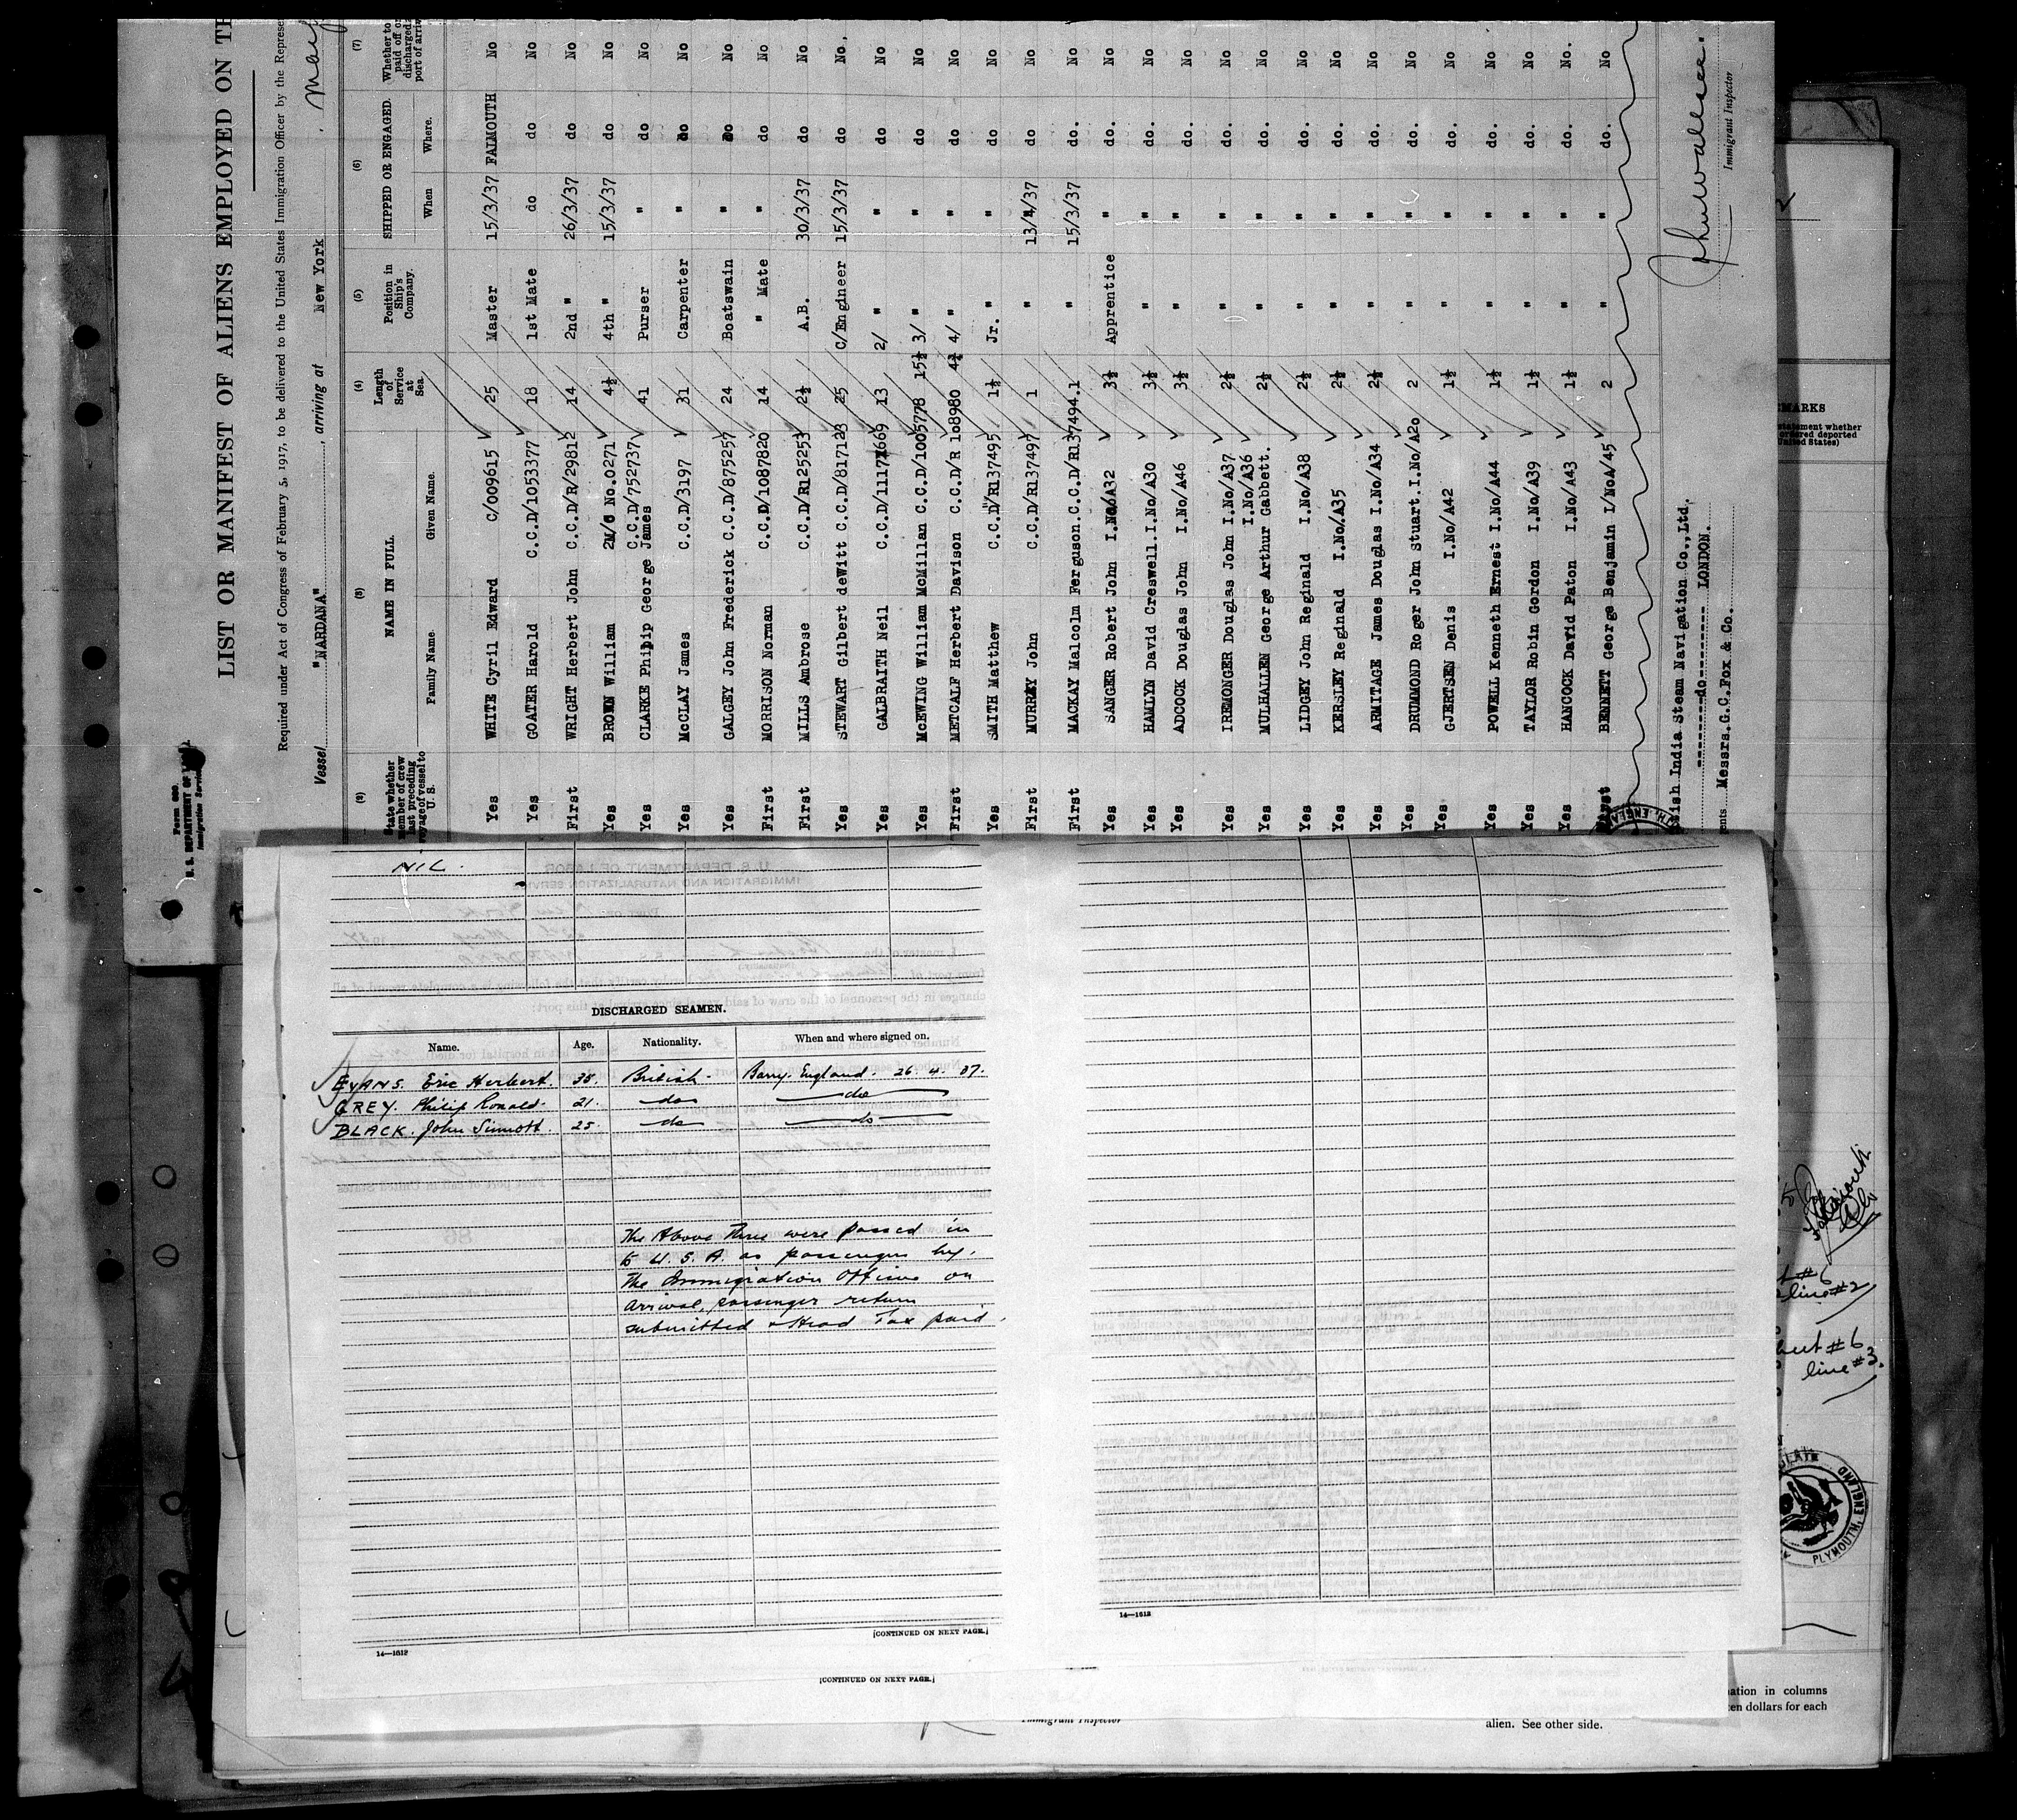 Form 680
U. S. DEPARTMENT OF
Immigration Service
LIST OR MANIFEST OF ALIENS EMPLOYED ON TH
Required under Act of Congress of February 5, 1917, to be delivered to the United States Immigration Officer by the Repres
Vessel "NARDANA", arriving at New York, May
(2) (3) (4) (5) (6) (7)
State whether member of crew last preceding voyage of vessel to U. S.
NAME IN FULL
Family Name. Given Name.
Length of Service at Sea.
Position in Ship's Company.
SHIPPED OR ENGAGED.
When Where.
Whether to paid off or discharged port of arriv
Yes WHITE Cyril Edward C/009615 25 Master 15/3/37 FALMOUTH No
Yes GOATER Harold C.C.D/1053377 18 1st Mate do do No
First WRIGHT Herbert John C.C.D/R/29812 14 2nd " 26/3/37 do No
Yes BROWN William No.0271 4½ 4th " 15/3/37 do No
Yes CLARKE Philip George James C.C.D/752737 41 Purser " do No
Yes McCLAY James C.C.D/3197 31 Carpenter " do No
Yes GALGEY John Frederick C.C.D/875257 24 Boatswain " do No
First MORRISON Norman C.C.D/1087820 14 " Mate " do No
First MILLS Ambrose C.C.D/R125253 2½ A.B. 30/3/37 do No
Yes STEWART Gilbert deWitt C.C.D/817123 25 C/Engineer 15/3/37 do No.
Yes GALBRAITH Neil 13 2/ " " do No
Yes McEWING William McMillan C.C.D/1005778 15½ 3/ " " do No
First METCALF Herbert Davison C.C.D/R 108980 4½ 4/ " " do No
Yes SMITH Matthew C.C.D/R137495 1½ Jr. " " do No
First MURRAY John C.C.D/R137497 1 " 13/4/37 do No
First MACKAY Malcolm Ferguson. C.C.D/R137494. 1 " 15/3/37 do. No
Yes SANGER Robert John I.No/A32 3½ Apprentice " do. No
Yes HAMLYN David Creswell. I.No/A30 3½ " " do. No
Yes ADCOCK Douglas John I.No/A46 3½ " " do. No
Yes IREMONGER Douglas John I.No/A37 2½ " " do. No
Yes MULHALLEN George Arthur Gabbett. I.No/A36 2½ " " do. No
Yes LIDGEY John Reginald I.No/A38 2½ " " do. No
Yes KERSLEY Reginald I.No/A35 2½ " " do. No
Yes ARMITAGE James Douglas I.No/A34 2½ " " do. No
Yes DRUMMOND Roger John Stuart. I.No/A20 2 " " do. No
Yes GJERTSEN Denis I.No/A42 1½ " " do. No
Yes POWELL Kenneth Ernest I.No/A44 1½ " " do. No
Yes TAYLOR Robin Gordon I.No/A39 1½ " " do. No
Yes HANCOCK David Paton I.No/A43 1½ " " do. No.
First BENNETT George Benjamin I/NoA/45 2 " " do. No
ish India Steam Navigation Co.,Ltd.
---------do--------- LONDON.
ents Messrs.G.C.Fox & Co.
Immigrant Inspector
NIL.
DISCHARGED SEAMEN.
Name. Age. Nationality. When and where signed on.
EVANS. Eric Herbert. British. Barry. England. 26. 4. 37.
GREY. Philip Ronald. 21. do do
BLACK. John Sinnott. 25 do do
The Above Three were passed in
to U. S. A. as passengers by.
The Immigration Officer on
arrival, passenger return
submitted & Head Tax paid.
[CONTINUED ON NEXT PAGE.]
14—1612
[CONTINUED ON NEXT PAGE.]
14—1612
Immigrant Inspector
MARKS
statement whether
ordered deported
United States)
#6
line #2
#6
line #3.
PLYMOUTH, ENGLAND
ation in columns
ten dollars for each
alien. See other side.